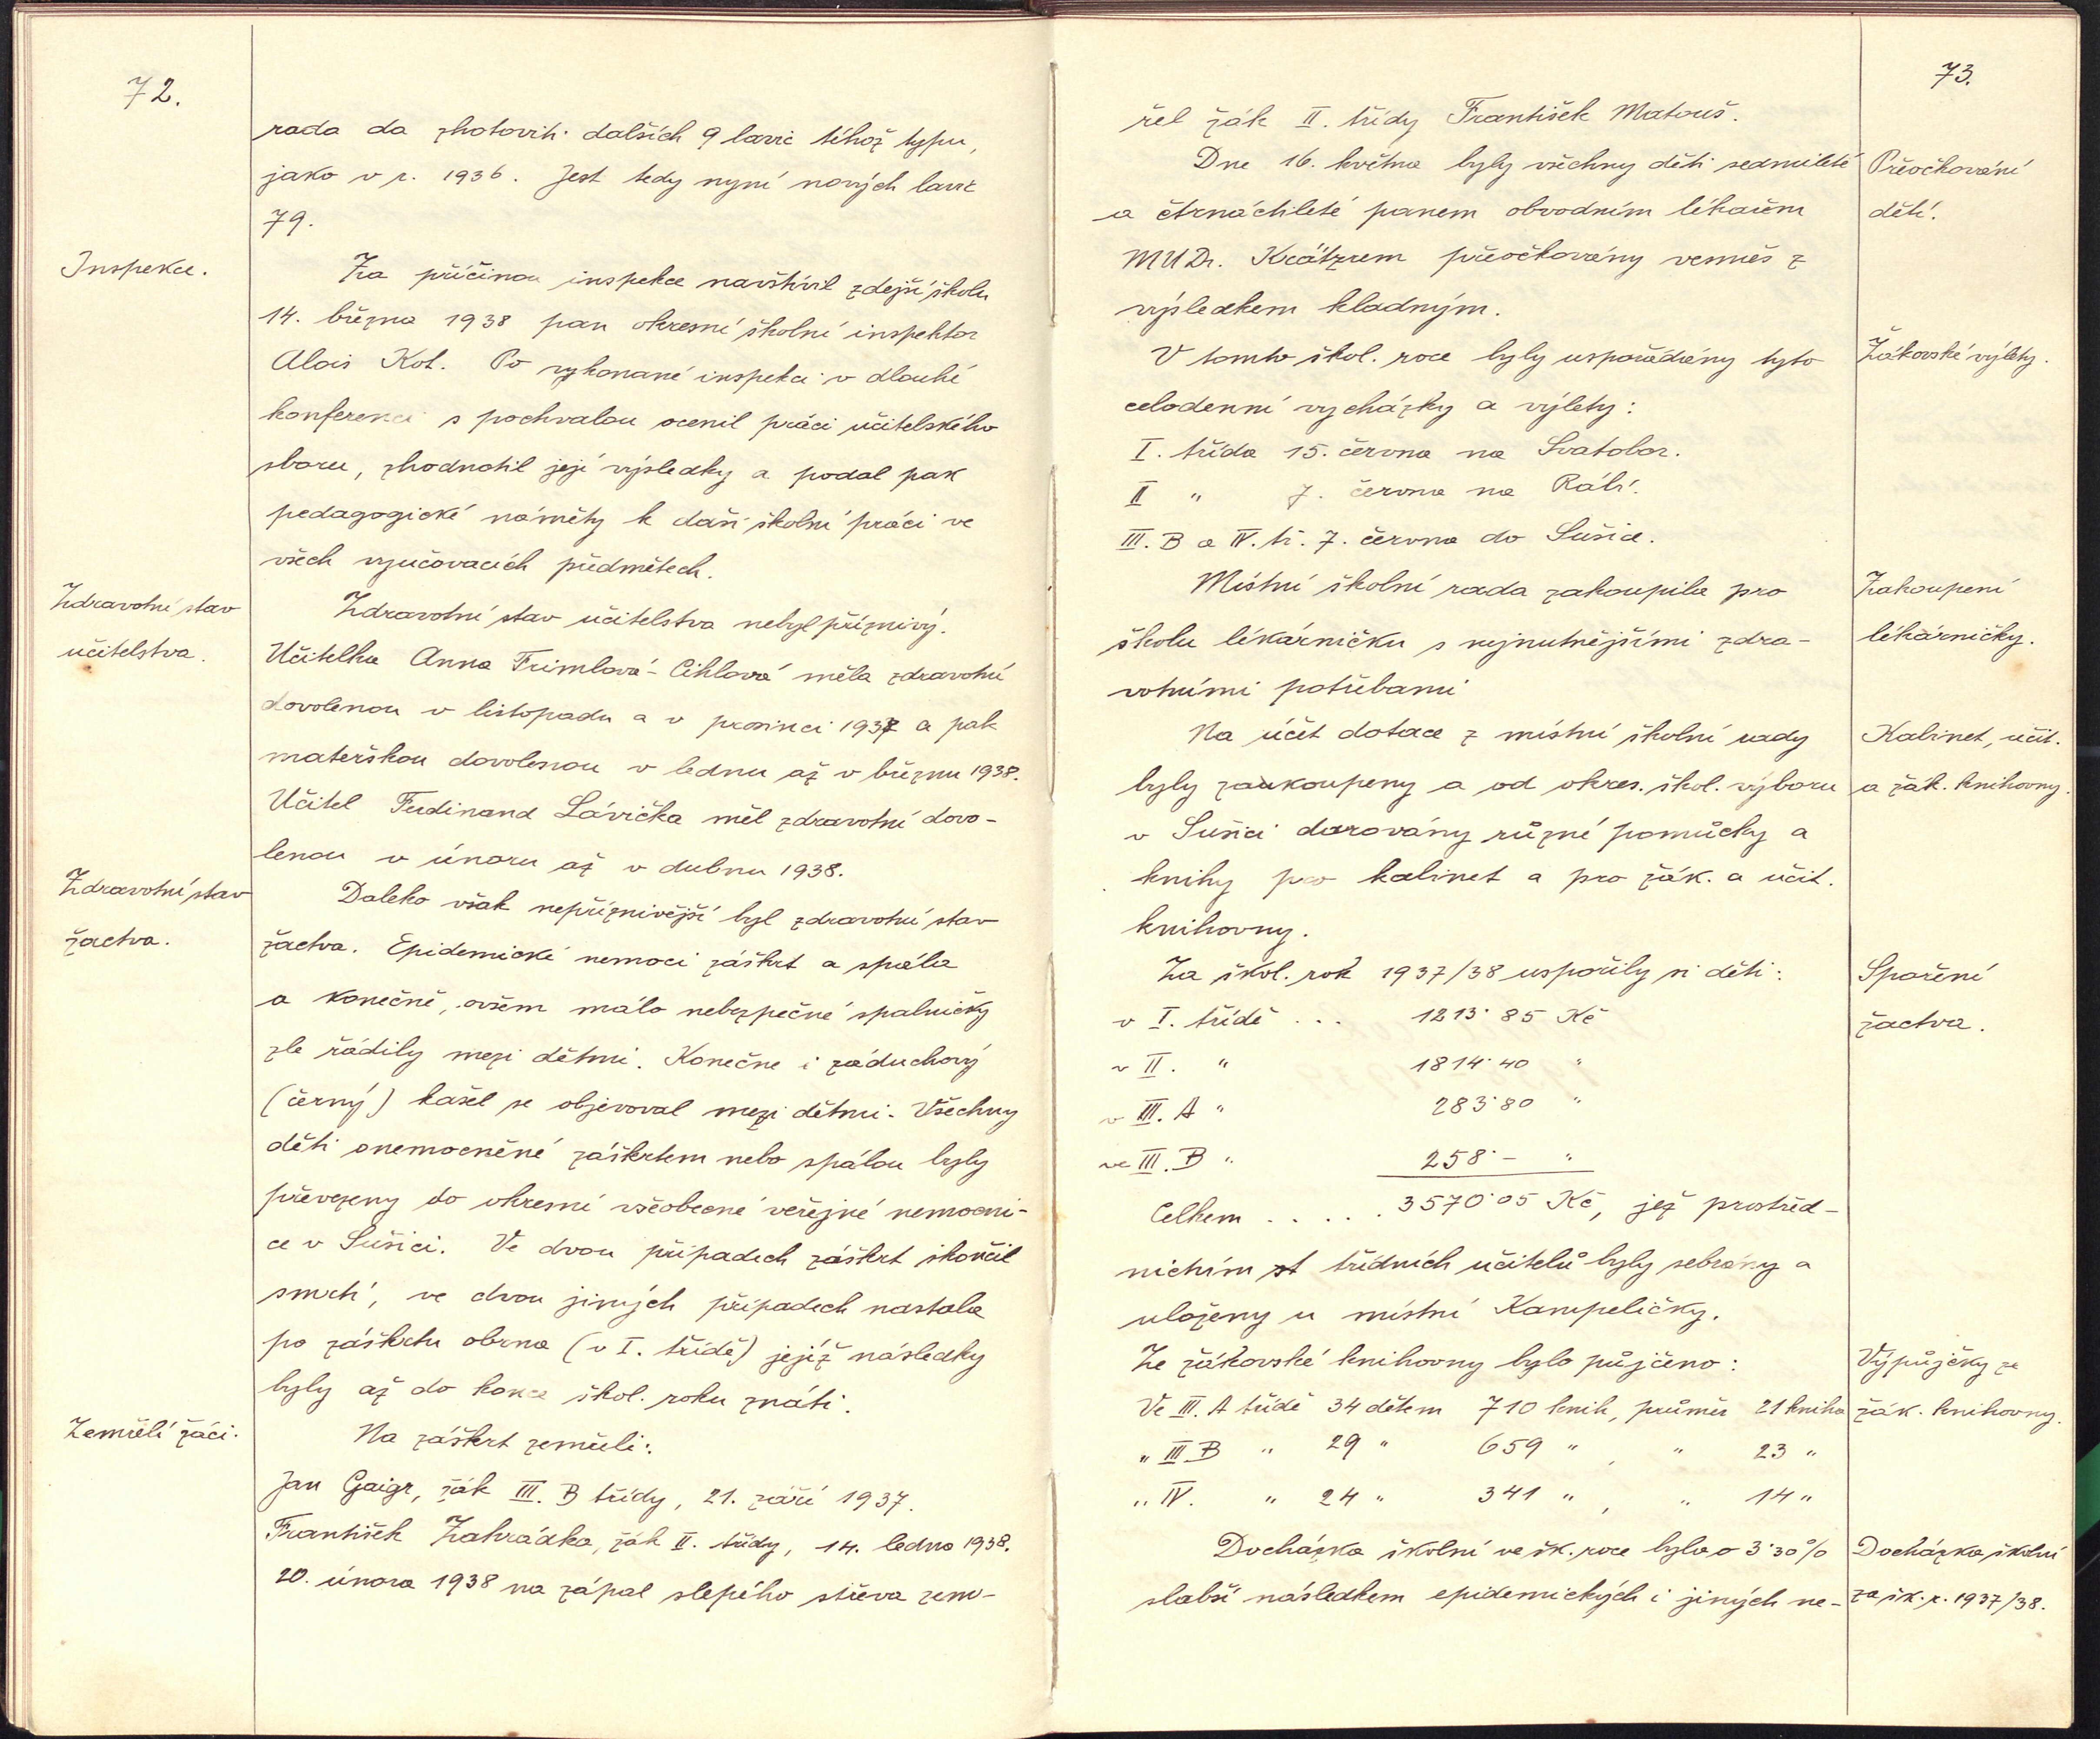 72.
rada da zhotoviti dalších 9 lavic téhož typu,
jako v r. 1936. Jest tedy nyní nových lavic
79.
Inspekce.
Za příčinou inspekce navštívil zdejší školu
14. března 1938 pan okresní školní inspektor
Alois Kot. Po vykonané inspekci v dlouhé
konferenci s pochvalou ocenil práci učitelského
sboru, zhodnotil její výsledky a podal pak
pedagogické náměty k daší školní práci ve
všech vyučovacích předmětech.
Zdravotní stav
učitelstva.
Zdravotní stav učitelstva nebyl příznivý.
Učitelka Anna Frimlová-Cihlová měla zdravotní
dovolenou v listopadu a v prosinci 1937 a pak
mateřskou dovolenou v lednu až v březnu 1938.
Učitel Ferdinand Lávička měl zdravotní dovo-
lenou v únoru až v dubnu 1938.
Zdravotní stav
žactva.
Daleko však nepříznivější byl zdravotní stav
žactva. Epidemické nemoci záškrt a spála
a konečně, ovšem málo nebezpečné spalničky
zle řádily mezi dětmi. Konečne i záduchový
(černý) kašel se objevoval mezi dětmi. Všechny
děti onemocněné záškrtem nebo spálou byly
převezeny do okresní všeobecné veřejné nemocni-
ce v Sušici. Ve dvou případech záškrt skončil
smrtí, ve dvou jiných případech nastala
po záškrtu obrna (v I. třídě) jejíž následky
byly až do konce škol. roku znáti.
Zemřelí žáci.
Na záškrt zemřeli:
Jan Gaigr, žák III. B třídy, 21. září 1937.
František Zahrádka, žák II. třídy, 14. ledna 1938.
20. února 1938 na zápal slepého střeva zem-
73.
řel žák II. třídy František Matouš.
Dne 16. května byly všechny děti sedmileté
a čtrnáctileté panem obvodním lékařem
MUDr. Krátzrem přeočkovány vesměs z
výsledkem kladným.
Přeočkování
dětí.
V tomto škol. roce byly uspořádány tyto
celodenní vycházky a výlety:
Žákovské výlety.
I. třída 15. června na Svatobor.
II " 7. června na Rábí.
III. B a IV. tř. 7. června do Sušice.
Místní školní rada zakoupila pro
školu lékárničku s nejnutnějšími zdra-
votními potřebami
Zakoupení
lékárničky.
Na účet dotace z místní školní rady
byly zaukoupeny a od okres. škol. výboru
v Sušici darovány různé pomůcky a
knihy pro kabinet a pro žák. a učit.
knihovny.
Kabinet, učit.
a žák. knihovny.
Za škol. rok 1937/38 uspořily si děti:
Spoření
žactva.
v I. třídě ... 1213·85 Kč
v II. " 1814·40 "
v III. A " 283·80 "
ve III. B " 258·- "
Celkem ..... 3570·05 Kč, jež prostřed-
nictvím tř třídních učitelů byly sebrány a
uloženy u místní Kampeličky.
Ze žákovské knihovny bylo půjčeno:
Výpůjčky ze
žák. knihovny.
Ve III. A třídě 34 dětem 710 knih, průměr 21 kniha
" III B " 29 " 659 " , " 23 "
" IV. " 24 " 341 " , " 14 "
Docházka školní ve šk. roce byla o 3·30%
slabší následkem epidemických i jiných ne-
Docházka školní
za šk. r. 1937/38.